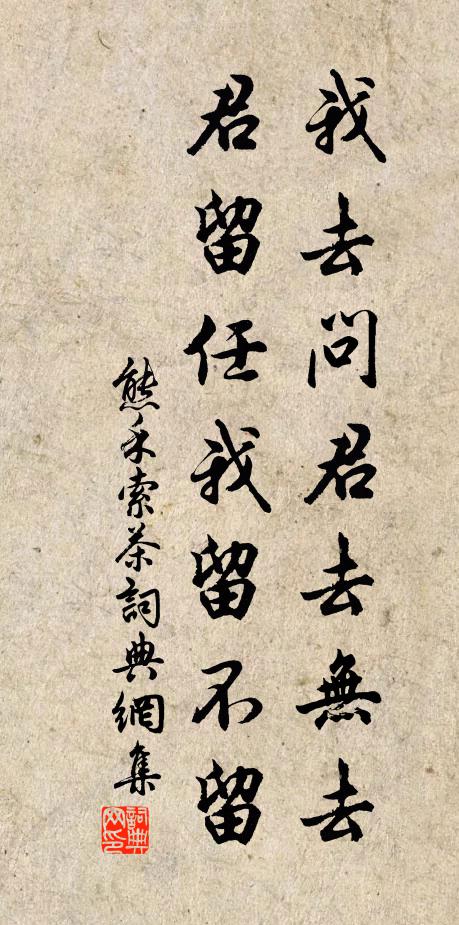 我去問君去無去
君留任我留不留
熊禾索茶詞典網集
詞典
网印